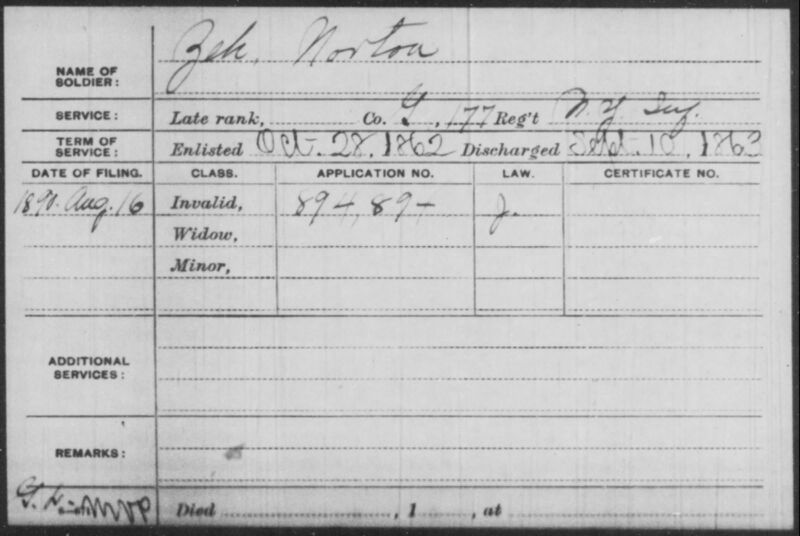 Zeh, Norton
NAME OF SOLDIER:
SERVICE: Late rank, Co. G, 177 Reg't N.Y. Inf.
TERM OF SERVICE: Enlisted Oct. 28, 1862 Discharged Sept. 10, 1863
DATE OF FILING. CLASS. APPLICATION NO. LAW. CERTIFICATE NO.
1890. Aug. 16 Invalid, 894,894 J.
Widow,
Minor,
ADDITIONAL SERVICES:
REMARKS:
Died , 1 , at